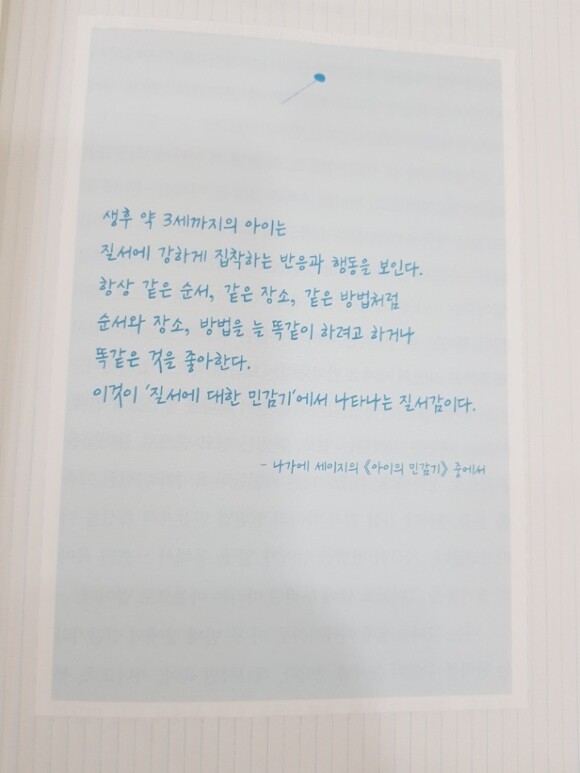 생후 약 3세까지의 아이는
질서에 강하게 집착하는 반응과 행동을 보인다.
항상 같은 순서, 같은 장소, 같은 방법처럼
순서와 장소, 방법을 늘 똑같이 하려고 하거나
똑같은 것을 좋아한다.
이것이 '질서에 대한 민감기'에서 나타나는 질서감이다.
- 나가에 세이지의 《아이의 민감기》 중에서